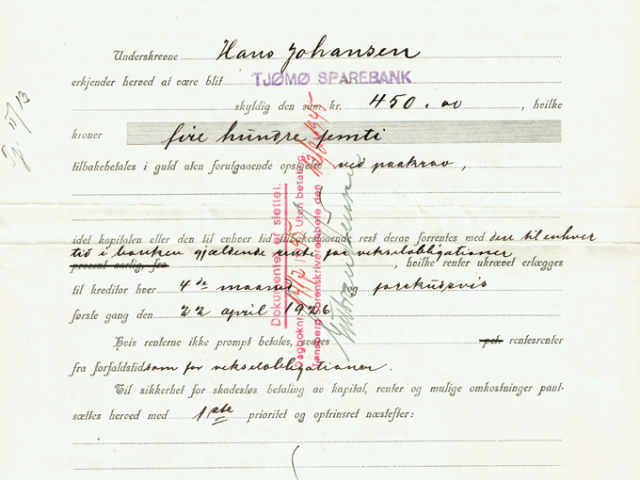 Underskrevne Hans Johansen
erkjender herved at være blit TJØMØ SPAREBANK
skyldig den sum kr. 450.00, hvilke
kroner fire hundre femti
tilbakebetales i guld uten forutgaaende opsigelse ved paakrav,
idet kapitalen eller den til enhver tid tilbakestaaende rest derav forrentes med den til enhver
tid i banken gjældende rente for vekselobligationer
procent aarlig fra, hvilke renter ukrævet erlægges
til kreditor hver 4de maaned og forskudsvis
første gang den 22 april 1926
Hvis renterne ikke prompt betales, svares pct. rentesrenter
fra forfaldstid som for vekselobligationer.
Til sikkerhet for skadesløs betaling av kapital, renter og mulige omkostninger pant-
sættes herved med 1ste prioritet og optrinsret næstefter:
Dokumentet er slettet.
Dagboknr. 1945 Uten betaling.
Tønsberg sorenskriverembete den 13/2 1945